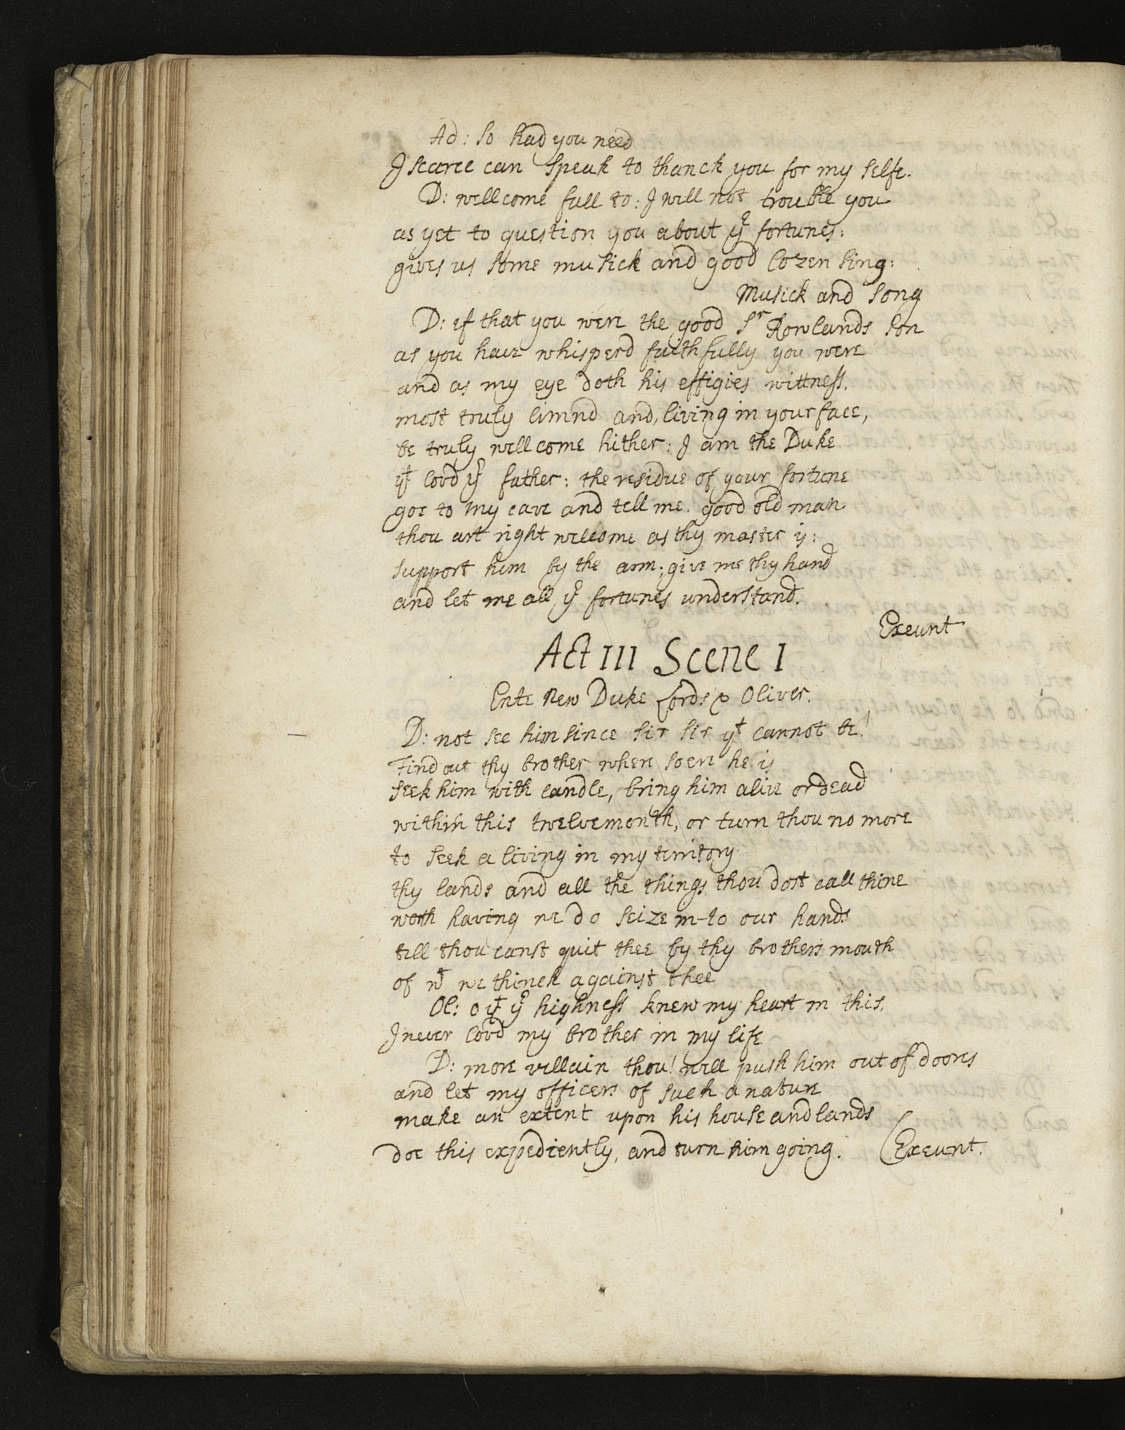 Ad: so had you need
I scarce can speak to thanck you for my selfe.
D: wellcome fall to: I will not trouble you
as yet to question you about yr fortunes:
gives us some musick and good Cozen sing:
Musick and Song
D: if that you were the good Sr Rowlands son
as you have whisperd faithfully you were
and as my eye doth his effigies wittness,
most truly limnd and, living in your face,
be truly wellcome hither: I am the Duke
yt lovd yr father: the residue of your fortune
goe to my cave and tell me. good old man
thou art right wellcome as thy master is:
support him by the arm; give me thy hand
and let me all yr fortunes understand.
Exeunt
Act III Scene I
Ente New Duke Lords & Oliver.
D: not see him since sir sir yt cannot be!
Find out thy brother where soere he is
seek him with candle, bring him alive or dead
within this twelvemonth, or turn thou no more
to seek a living in my territory
thy lands and all the things thou dost call thine
worth having we do seize in-to our hands
till thou canst quit thee by thy brothers mouth
of wt we thinck against thee
Ol: o yt yr highness knew my heart in this.
I never lovd my brother in my life
D: more villain thou! well push him out of doores
and let my officers of such a nature
make an extent upon his house and lands
doe this expediently, and turn him going. (Exeunt.